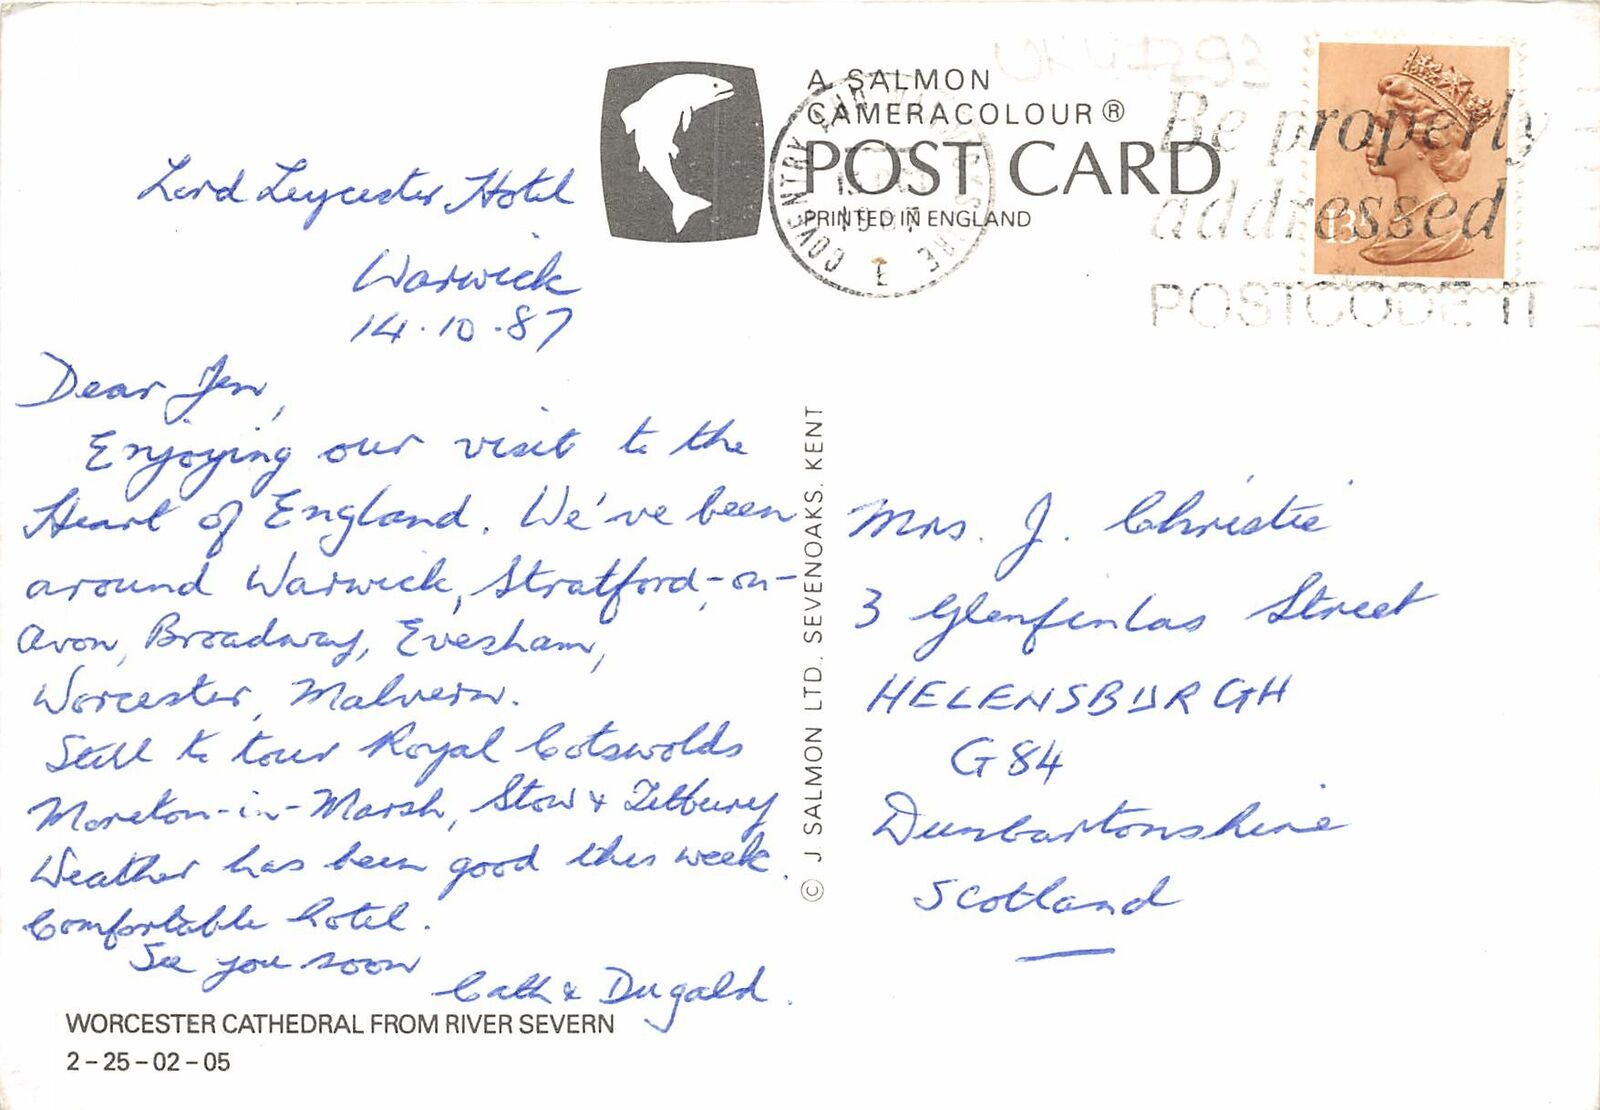 A SALMON
CAMERACOLOUR®
POST CARD
PRINTED IN ENGLAND
COVENTRY
E
Be properly
addressed
POSTCODE IT
13P
Lord Leycester Hotel
Warwick
14.10.87
Dear Jen,
Enjoying our visit to the
Heart of England. We've been
around Warwick, Stratford-on-
Avon, Broadway, Evesham,
Worcester, Malvern.
Still to tour Royal Cotswolds
Moreton-in-Marsh, Stow & Tetbury
Weather has been good this week.
Comfortable hotel.
See you soon
Cath & Dugald.
WORCESTER CATHEDRAL FROM RIVER SEVERN
2-25-02-05
© J. SALMON LTD., SEVENOAKS, KENT
Mrs. J. Christie
3 Glenfinlas Street
HELENSBURGH
G84
Dunbartonshire
Scotland